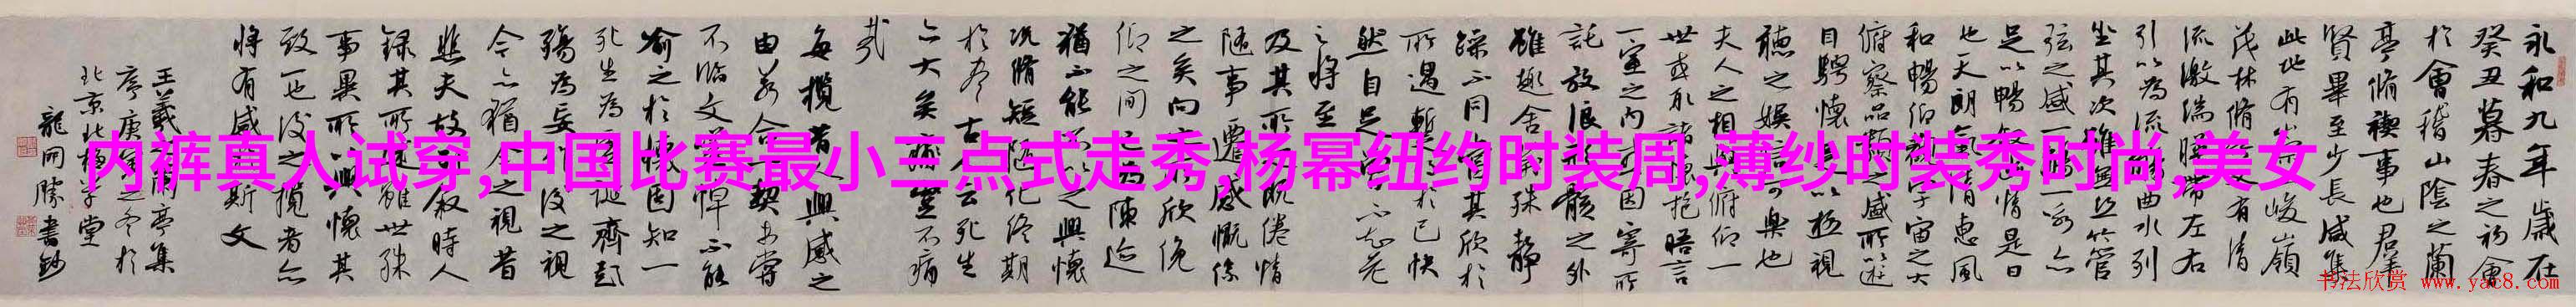 永和九年歲在
癸丑暮春之初會
於會稽山陰之蘭
亭脩禊事也群
賢畢至少長咸集
此地有崇峻嶺
茂林脩竹又有清
流激湍暎帶左右
引以為流觴曲水列
坐其次雖無絲竹管
弦之盛一觴一詠亦
足以暢敘幽情是日
也天朗氣清惠風
和暢仰觀宇宙之大
俯察品類之盛所以遊
目騁懷足以極視
聽之娛信可樂也
夫人之相與俯仰一
世或取諸懷抱晤言
一室之內或因寄所
託放浪形骸之外
雖趣舍萬殊靜
躁不同當其欣於
所遇暫得於己快
然自足曾不知老
之將至
及其所之既倦情
隨事遷感慨係
之矣向之所欣俛
仰之間已為陳迹
猶不能不以之興懷
況脩短隨化終期
於盡古人云死生
亦大矣豈不痛
哉
每攬昔人興感之
由若合一契未嘗
不臨文嗟悼不能
喻之於懷固知一
死生為虛誕齊彭
殤為妄作後之視
今亦猶今之視昔
悲夫故列敘時人
錄其所述雖世殊
事異所以興懷其
致一也後之攬者亦
將有感於斯文
王羲之蘭亭集
序庚寅之冬於
北京北學堂
龍開勝書鈔
内裤真人试穿,中国比赛最小三点式走秀,杨幂纽约时装周,薄纱时装秀时尚,美女
书法欣赏 www.yac8.com